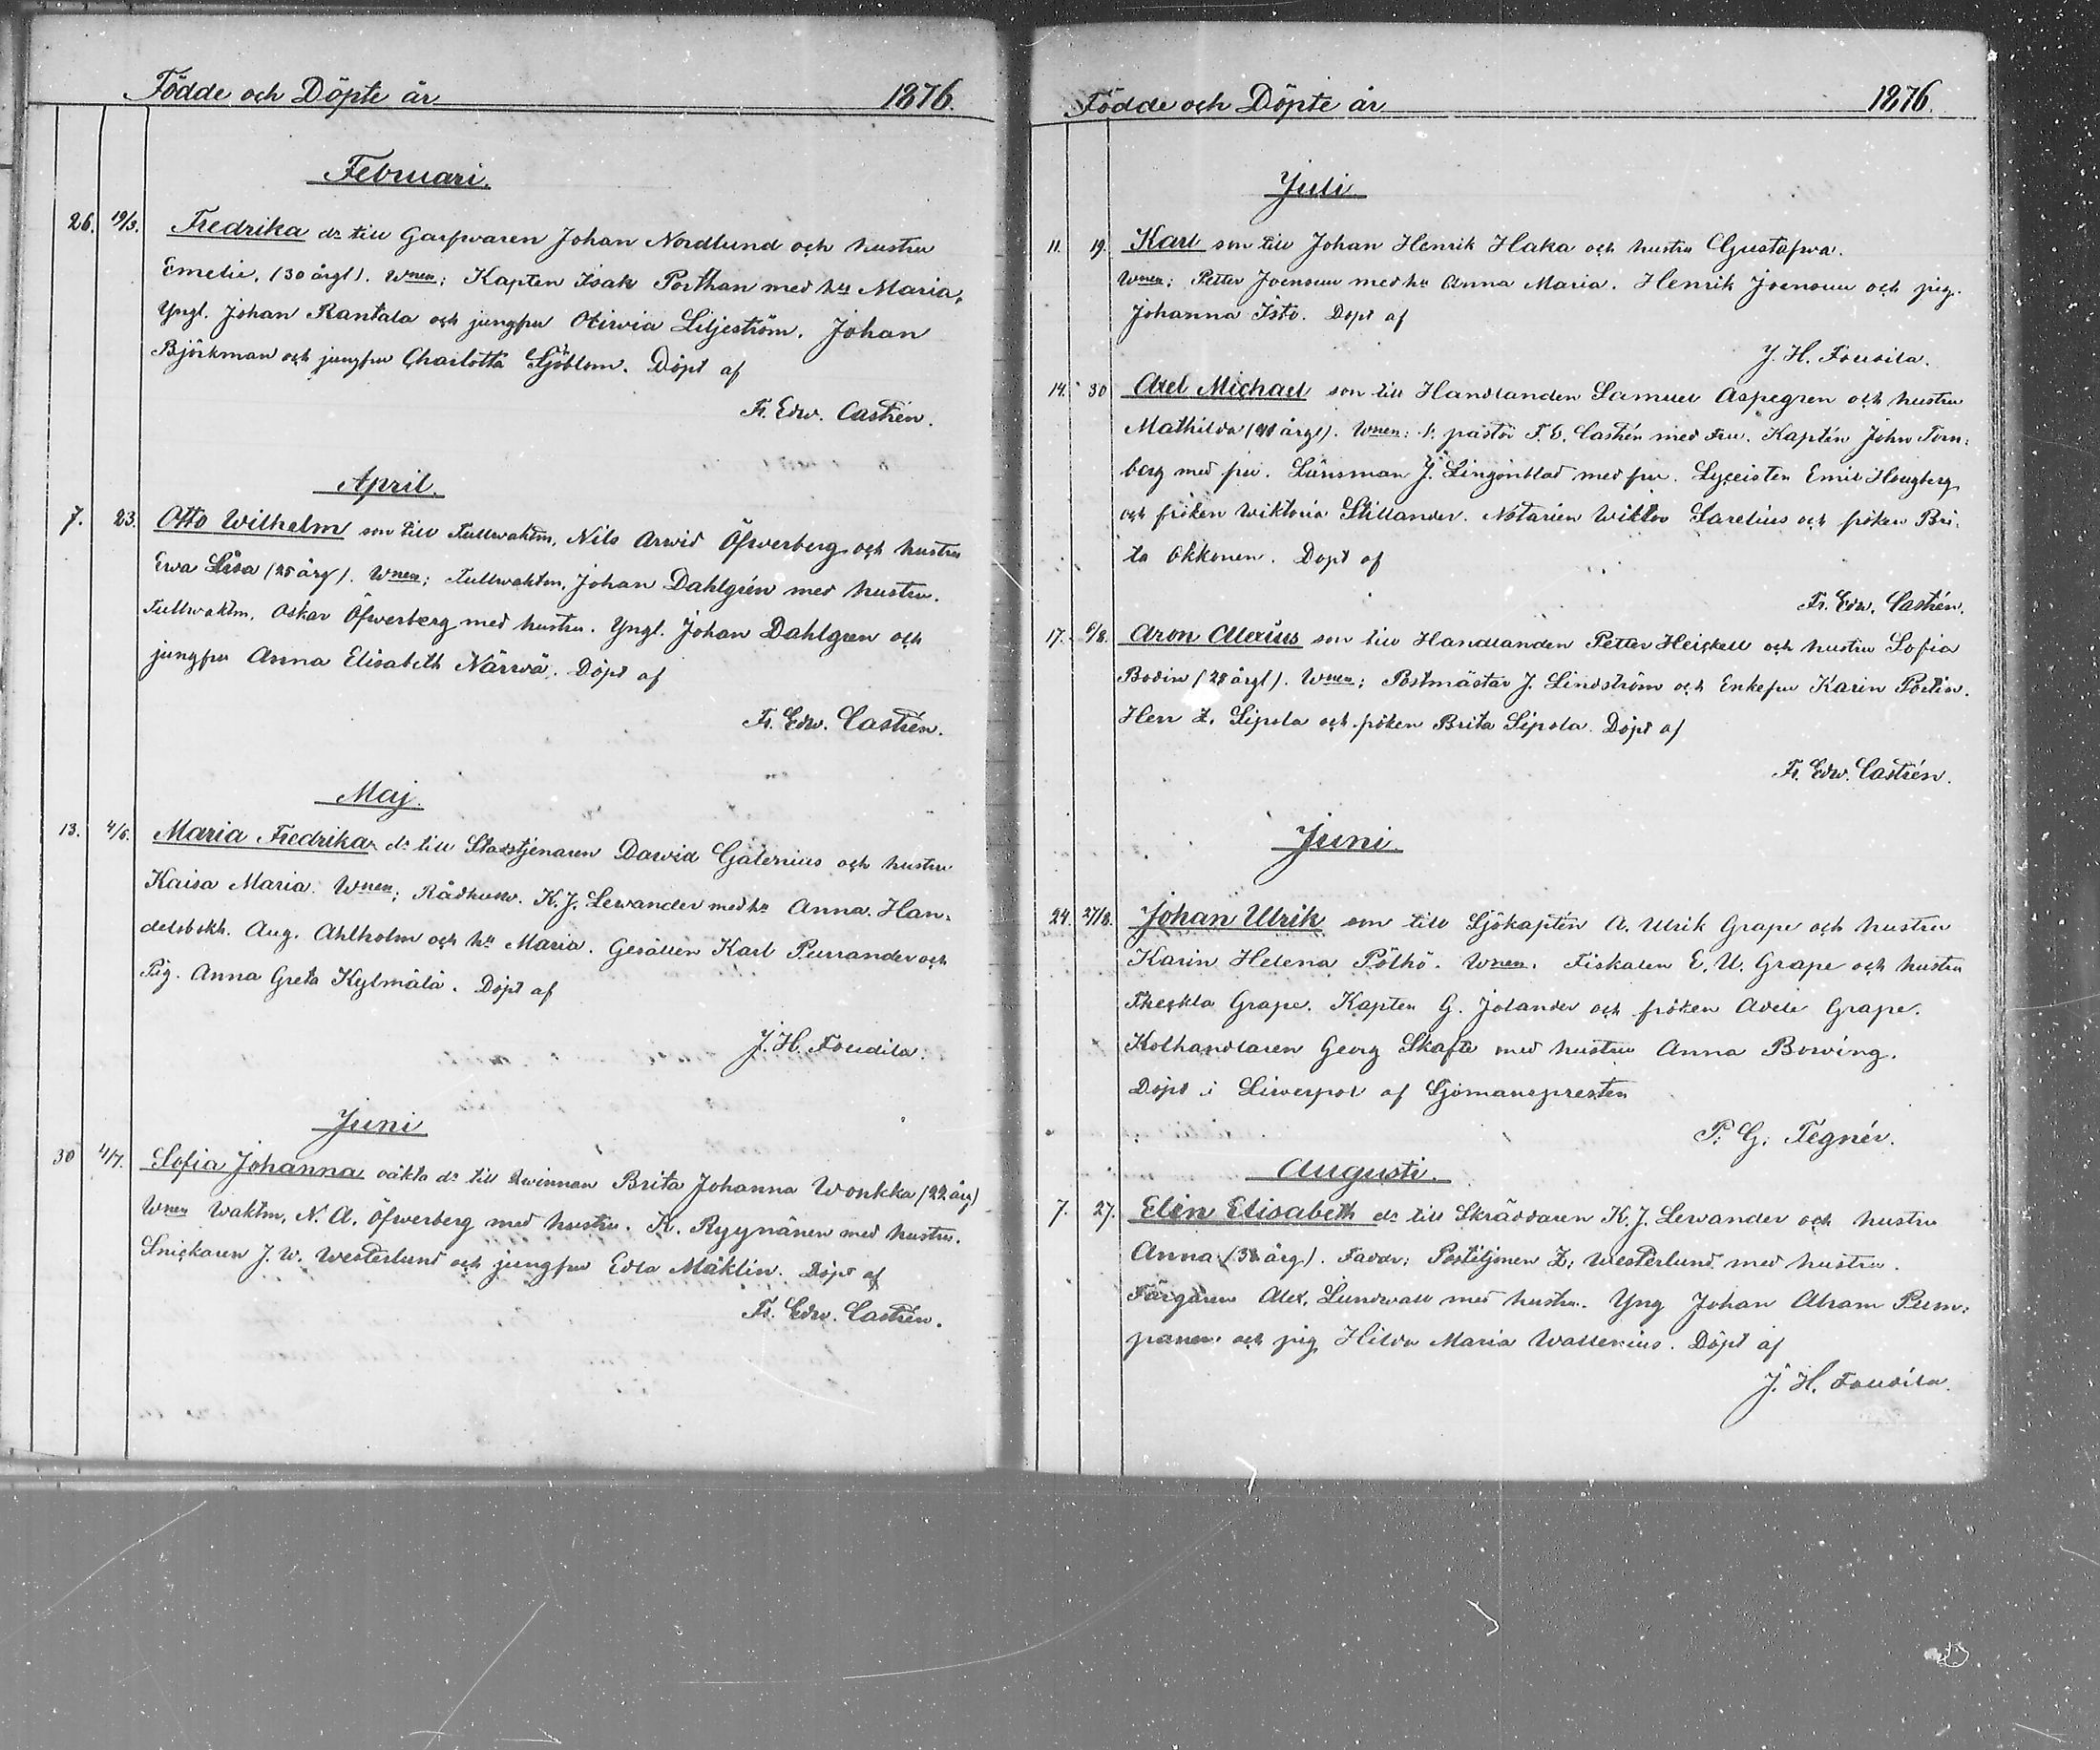 Födde och Döpte år 1876.
Februari.
26. 19/3. Fredrika dr till Garfwaren Johan Nordlund och hustru
Emelie, (30 årgl). Wnen: Kapten Isak Porthan med hu Maria,
Yngl. Johan Rantala och jungfru Oliwia Liljeström. Johan
Björkman och jungfru Charlotta Sjöblom. Döpt af
Fr. Edw. Castrén.
April.
7. 23. Otto Wilhelm son till Tullwaktm. Nils Arwid Öfwerberg och hustru
Ewa Lisa (25 årg). Wnen: Tullwaktm. Johan Dahlgrén med hustru.
Tullwaktm. Oskar Öfwerberg med hustru. Yngl. Johan Dahlgren och
jungfru Anna Elisabeth Närwä. Döpt af
Fr. Edw. Castrén.
Maj.
13. 4/6. Maria Fredrika dr till Stadstjenaren Dawid Galenius och hustru
Kaisa Maria. Wnen: K. J. Lewander med hu Anna. Han-
delsbokh. Aug. Ahlholm och hu Maria. Gesällen Karl Purrander och
Pig. Anna Greta Kylmälä. Döpt af
J. H. Foudila.
Juni
30 4/7. Sofia Johanna oäkta dr till Qwinnan Brita Johanna Wonkka (22 årg)
Wnen Waktm. N. A. Öfwerberg med hustru. K. Ryynänen med hustru.
Snickaren J. W. Westerlund och jungfru Edla Mäklin. Döpt af
Fr. Edw. Castrén.
Födde och Döpte år 1876.
Juli
11. 19. Karl son till Johan Henrik Haka och hustru Gustafwa.
Wnen: Petter Joensuu med hu Anna Maria. Henrik Joensuu och pig.
Johanna Isto. Döpt af
J. H. Foudila.
14. 30 Axel Michael son till Handlanden Samuel Aspegren och hustru
Mathilda (40 årgl). Wnen: pastor F. E. Castrén med Fru. Kaptén John Torn-
berg med fru. Länsman J. Lingonblad med fru. Lyceisten Emil Hougberg
och fröken Wiktoria Stillander. Notarien Wiktor Sarelius och fröken Bri-
ta Okkonen. Döpt af
Fr. Edw. Castrén.
17. 6/8. Aron Alexius son till Handlanden Petter Heickell och hustru Sofia
Bodin (28 årgl). Wnen: Postmästar J. Lindström och Enkefru Karin Portin.
Herr Z. Sipola och fröken Brita Sipola. Döpt af
Fr. Edw. Castrén.
Juni.
24. 27/8. Johan Ulrik son till Sjökaptén A. Ulrik Grape och hustru
Karin Helena Pölhö. Wnen. Fiskalen E. U. Grape och hustru
Theckla Grape. Kapten G. Jolander och fröken Adele Grape.
Kolhandlaren Georg Skafte med hustru Anna Bowing.
Döpt i Liwerpol af Sjömanspresten
P. G. Tegnér.
Augusti.
7. 27. Elin Elisabeth dr till Skräddaren K. J. Lewander och hustru
Anna (38 årg). Faddr: Postiljonen Z. Westerlund med hustru.
Färgaren Alex. Lundwall med hustru. Yng Johan Abram Pum-
panen och pig Hilda Maria Wallenius. Döpt af
J. H. Foudila.